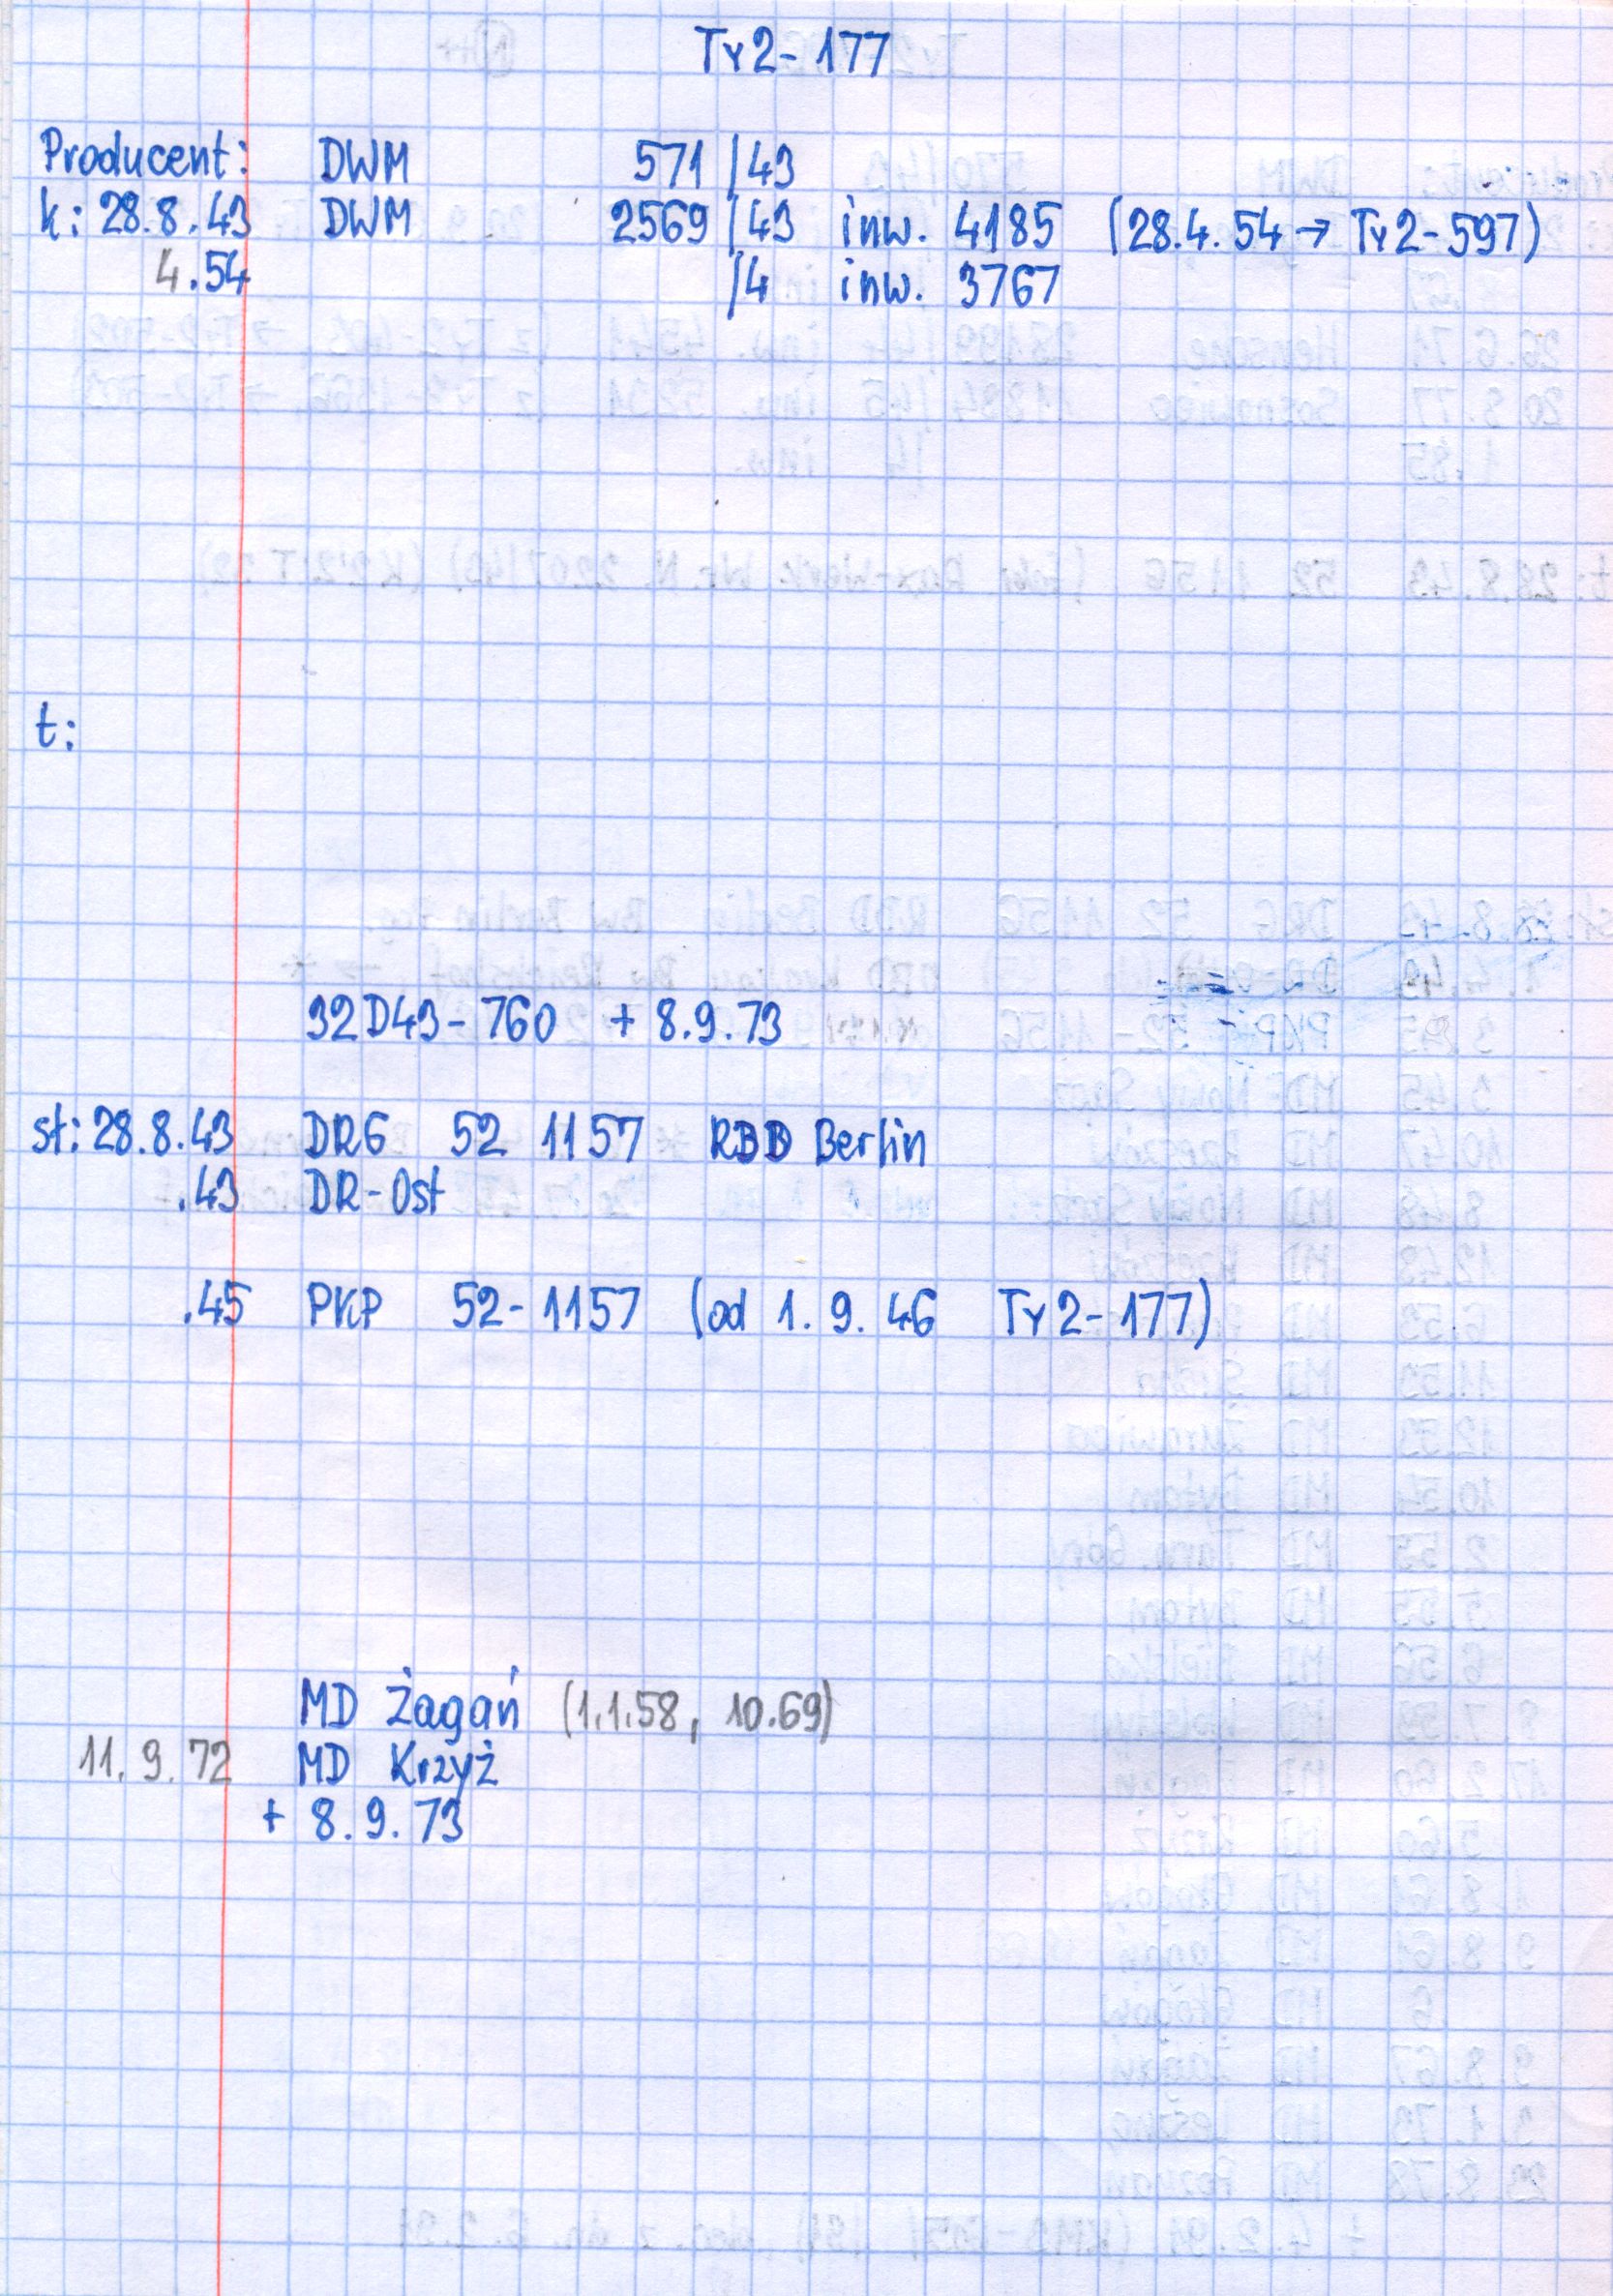 Ty2-177
Producent: DWM 571/43
k: 28.8.43 DWM 2569/43 inw. 4185 (28.4.54 → Ty2-597)
4.54 /4 inw. 3767
t:
32D43-760 + 8.9.73
st: 28.8.43 DRG 52 1157 RBD Berlin
.43 DR-Ost
.45 PKP 52-1157 (od 1.9.46 Ty2-177)
MD Żagań (1.1.58, 10.69)
11.9.72 MD Krzyż
+ 8.9.73